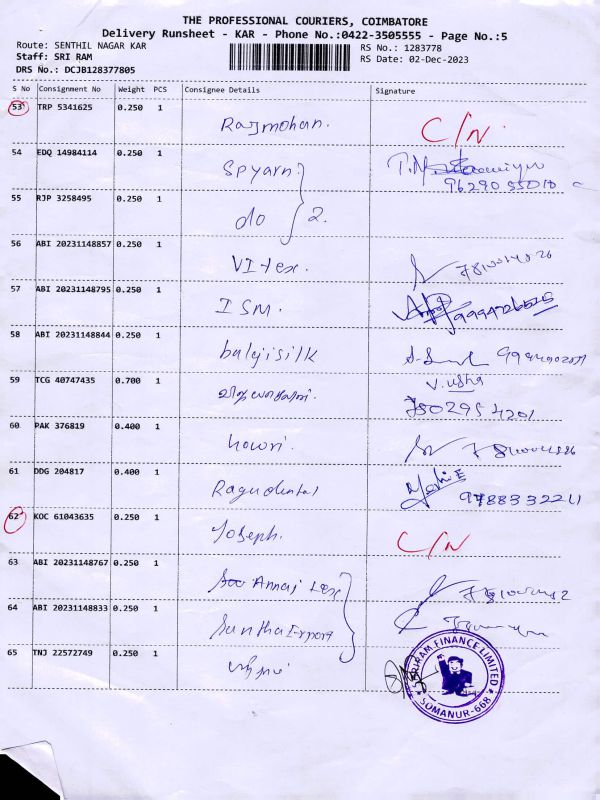 THE PROFESSIONAL COURIERS, COIMBATORE
Delivery Runsheet - KAR - Phone No.:0422-3505555 - Page No.:5
Route: SENTHIL NAGAR KAR RS No.: 1283778
Staff: SRI RAM RS Date: 02-Dec-2023
DRS No.: DCJB128377805
S No Consignment No Weight PCS Consignee Details Signature
53 TRP 5341625 0.250 1 Rajmohan. C/N
54 EDQ 14984114 0.250 1 Spyarn
55 RJP 3258495 0.250 1 do 2.
56 ABI 20231148857 0.250 1 VI tex.
57 ABI 20231148795 0.250 1 ISM.
58 ABI 20231148844 0.250 1 balajisilk
59 TCG 40747435 0.700 1 V. usha
60 PAK 376819 0.400 1
61 DDG 204817 0.400 1 Ragudental 9788332211
62 KOC 61043635 0.250 1 Joseph. C/N
63 ABI 20231148767 0.250 1 Annai tex
64 ABI 20231148833 0.250 1 Santha Export
65 TNJ 22572749 0.250 1
SHRIRAM FINANCE LIMITED
SOMANUR-668